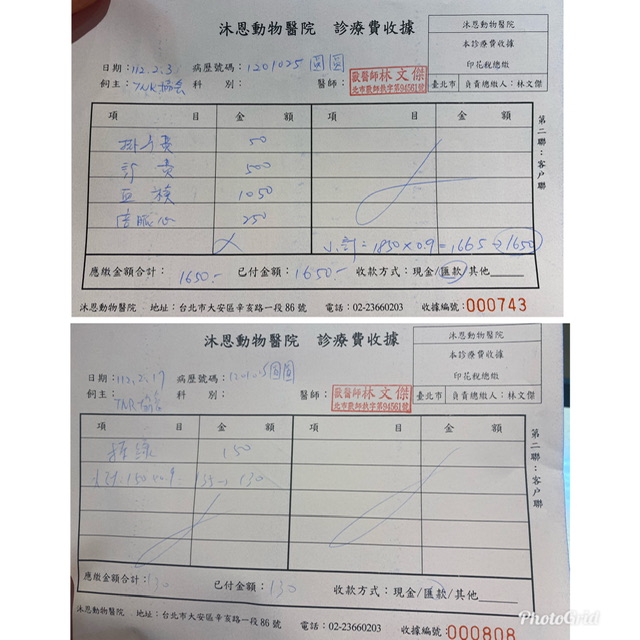 沐恩動物醫院 診療費收據
沐恩動物醫院
本診療費收據
印花稅總繳
臺北市 負責總繳人：林文傑
日期：112.2.3 病歷號碼：1201025 圓圓
飼主：TNR協會 科別： 醫師：
獸醫師林文傑
北市獸師執字第94561號
項目 金額 項目 金額
掛号費 50
診費 500
血檢 1050
250
小計=1850×0.9=1665→1650
應繳金額合計：1650.- 已付金額：1650.- 收款方式：現金/匯款/其他
沐恩動物醫院 地址：台北市大安區辛亥路一段86號 電話：02-23660203 收據編號：000743
第二聯：客戶聯
沐恩動物醫院 診療費收據
沐恩動物醫院
本診療費收據
印花稅總繳
臺北市 負責總繳人：林文傑
日期：112.2.17 病歷號碼：圓圓
飼主：TNR協會 科別： 醫師：
獸醫師林文傑
北市獸師執字第94561號
項目 金額 項目 金額
拆線 150
小計=150×0.9=135→130
應繳金額合計：130 已付金額：130 收款方式：現金/匯款/其他
沐恩動物醫院 地址：台北市大安區辛亥路一段86號 電話：02-23660203 收據編號：000808
第二聯：客戶聯
PhotoGrid